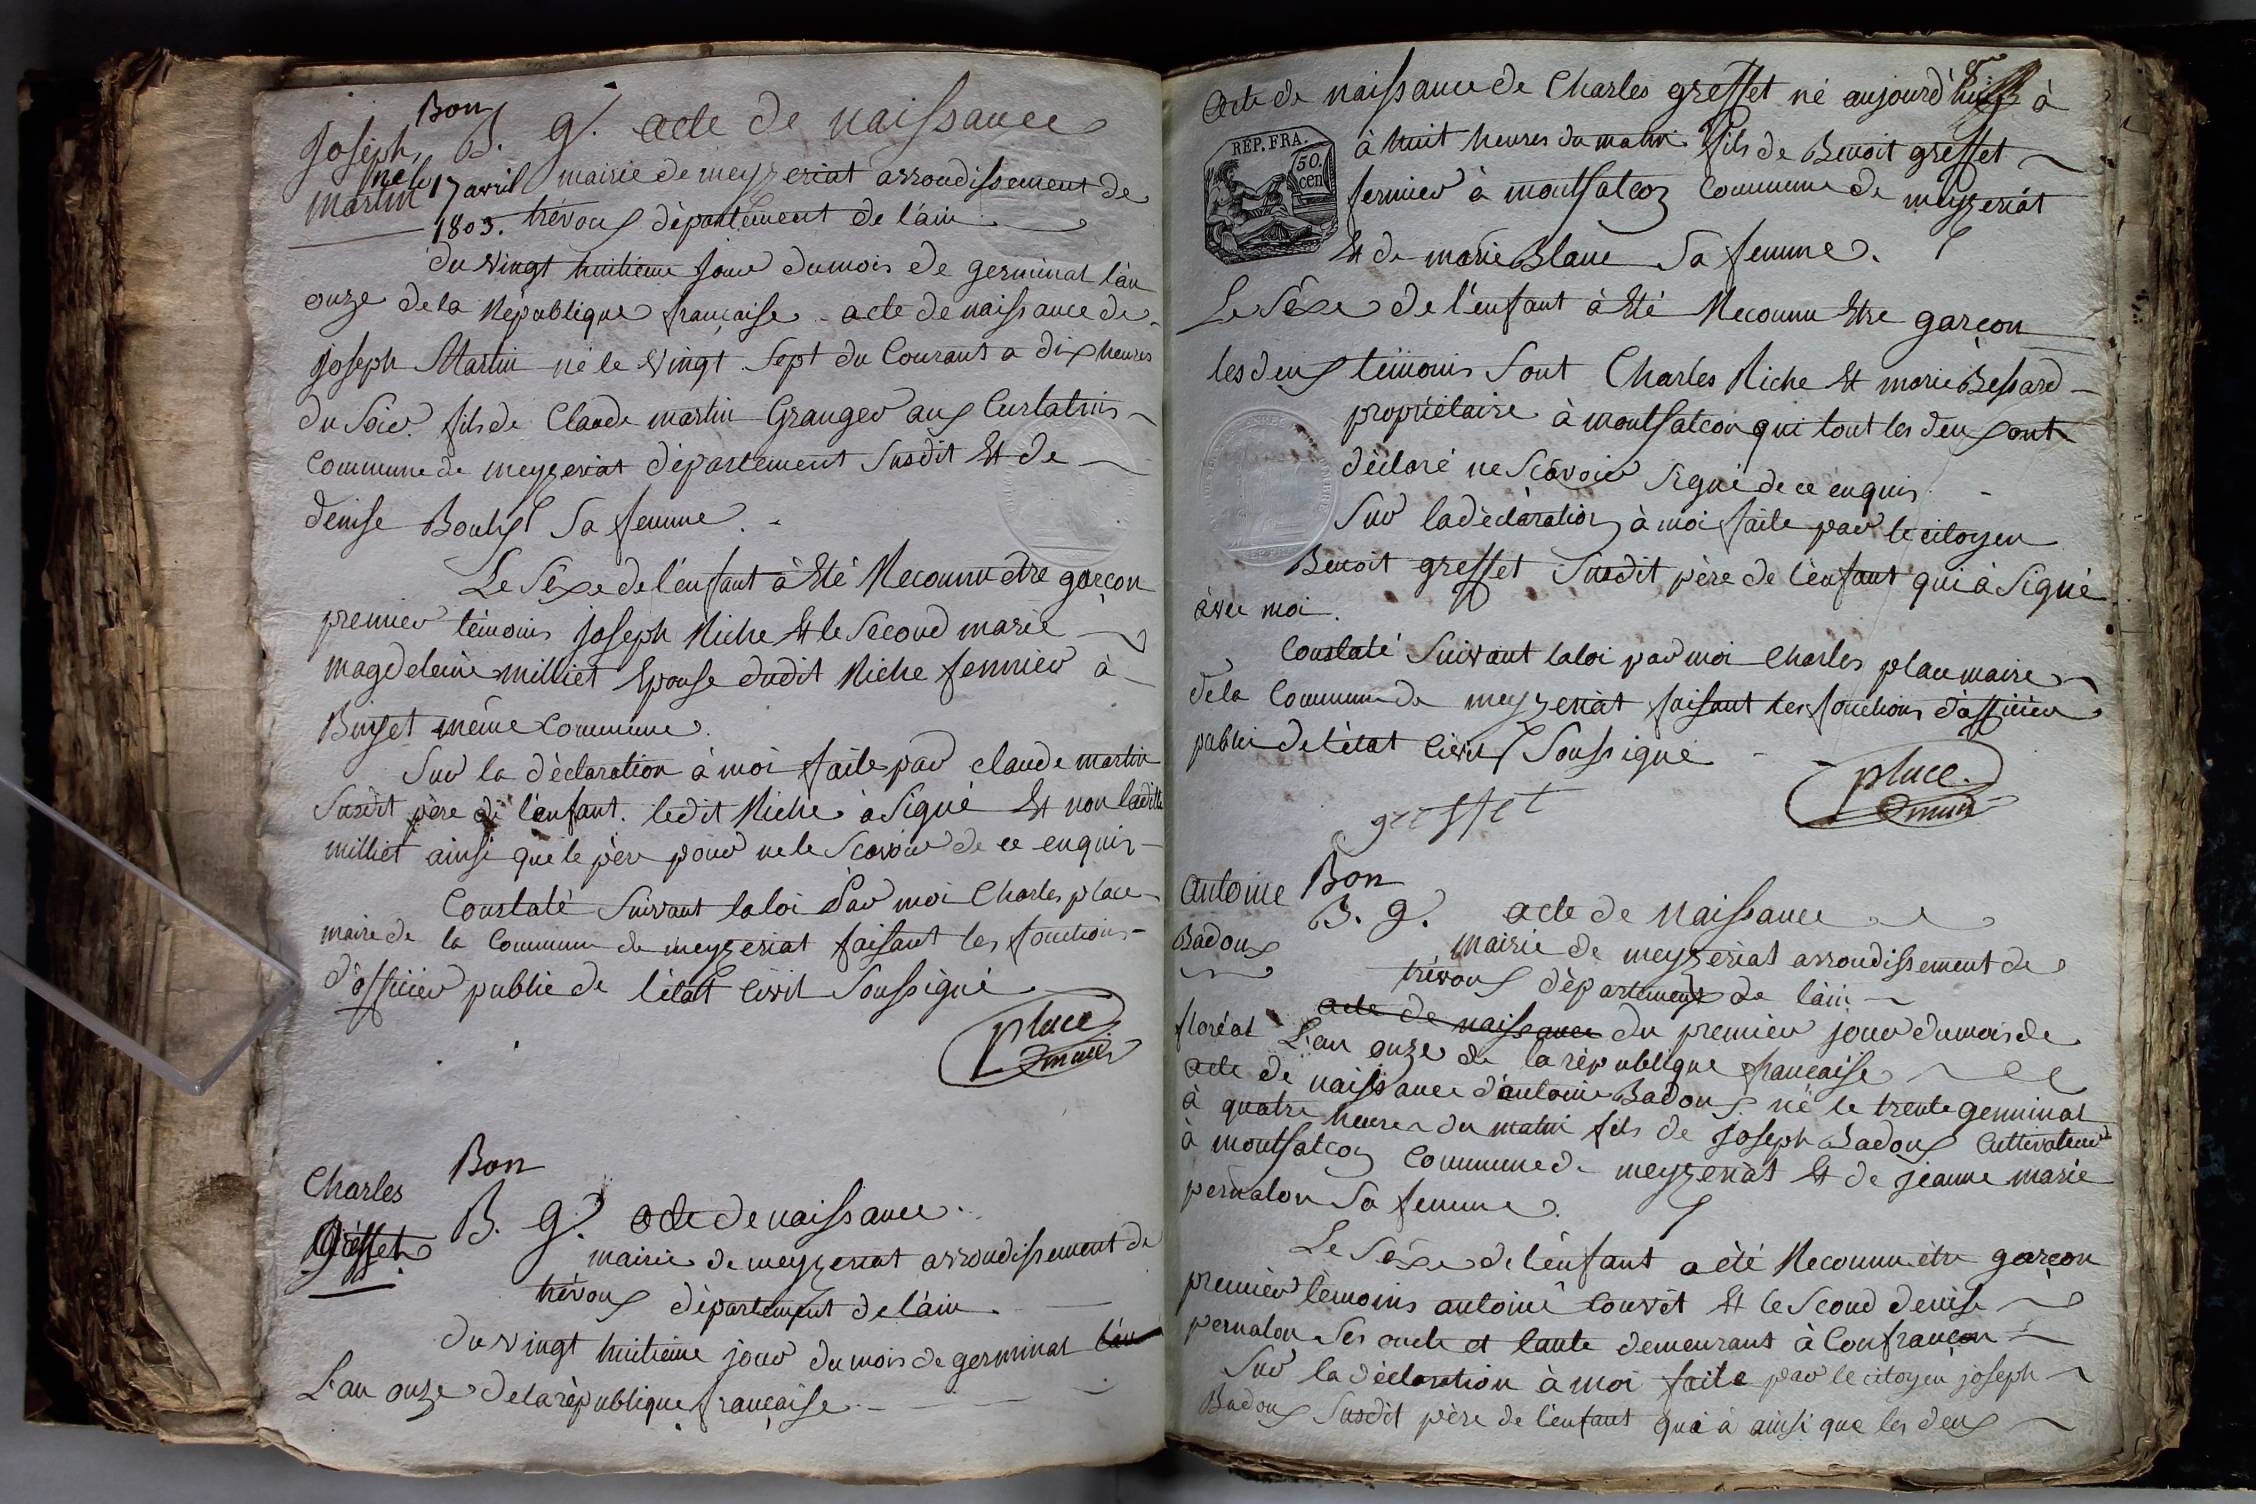 Bon
Joseph B. g. acte de naissance
né le 17 avril mairie de meyzeriat arrondissement de
martin 1803. trévoux département de l'ain
du vingt huitieme jour du mois de germinal l'an
onze de la République française acte de naissance de
joseph Martin né le vingt sept du Courant a dix heures
du Soir. fils de Claude martin Granger aux Curtatins
Commune de meyzeriat département Susdit Et de
denise Sa femme.
Le Sèxe de l'enfant à Eté Reconnu etre garçon
premier témoins joseph Riche Et le Second marie
magdeleine milliet Epouse dudit Riche fermier à
même Commune.
Sur la déclaration à moi faite par claude martin
Susdit père de l'enfant. ledit Riche à Signé Et non ladite
milliet ainsi que le père pour ne le Scavoir de ce enquis
Constaté Suivant la loi Par moi Charles place
maire de la Commune de meyzeriat faisant les fonctions
d'officier public de l'état Civil Soussigné
place
maire
Charles Bon
Gresset B. g. acte de naissance.
mairie de meyzeriat arrondissement de
trévoux département de l'ain.
du vingt huitieme jour du mois de germinal l'an
L'an onze de la république française
8
Acte de naissance de Charles gresset né aujourd'hui à
à huit heures du matin fils de Benoit gresset
REP. FRA.
50.
cen
fermier à montfalcon Commune de meyzeriat
Et de marie Blanc Sa femme.
Le Sèxe de l'enfant à Eté Reconnu Etre garçon
les deux témoins Sont Charles Riche Et marie Bessard
propriétaire à montfalcon qui tout les deux ont
déclaré ne Scavoir Signé de ce enquis
Sur la déclaration à moi faite par le citoyen
Benoit gresset Susdit père de l'enfant qui à Signé
avec moi.
Constaté Suivant la loi par moi Charles place maire
de la Commune de meyzeriat faisant les fonctions d'officier
public de l'état Civil Soussigné
place.
maire
gresset
Antoine Bon
B. g. acte de naissance
Badoux mairie de meyzeriat arrondissement de
trévoux département de l'ain
acte de naissance du premier jour du mois de
floréal L'an onze de la république française
acte de naissance d'antoine Badoux né le trente germinal
à quatre heures du matin fils de joseph Badoux Cultivateur
à montfalcon Commune de meyzeriat Et de jeanne marie
pernalon Sa femme.
Le Sèxe de l'enfant a été Reconnu être garçon
premier témoins antoine Convèt Et le Scond denise
pernalon Ses oncle et tante demeurant à Confrançon
Sur la déclaration à moi faite par le citoyen joseph
Badoux Susdit père de l'enfant qui à ainsi que les deux